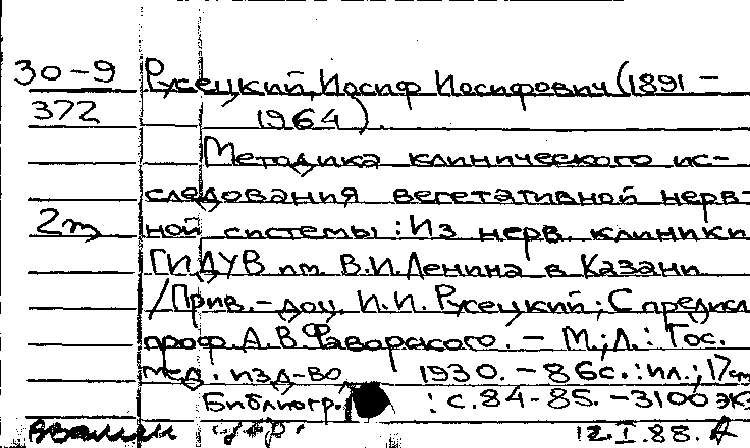 30-9 Русецкий, Иосиф Иосифович (1891 -
372 1964).
Методика клинического ис-
следования вегетативной нерв-
2т ной системы : Из нерв. клиники
ГИДУВ им. В.И. Ленина в Казани
/ Прив.-доц. И.И. Русецкий ; С предисл.
проф. А.В. Фаворского. - М.; Л. : Гос.
мед. изд-во 1930. - 86с. : ил.; 17см
Библиогр. : с. 84-85. - 3100 эк
12.I.88.